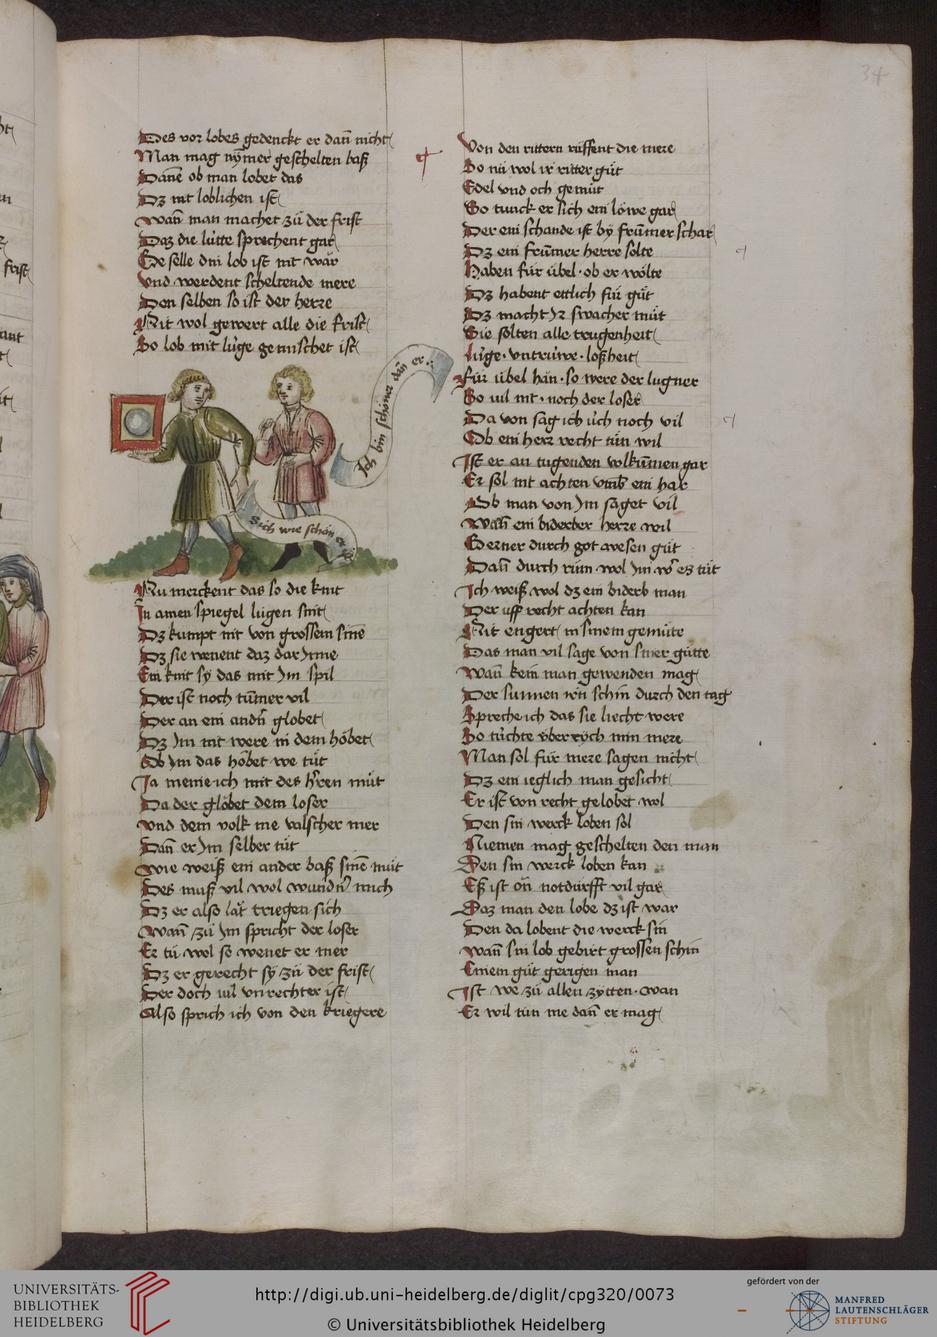 34
Des vor lobes gedenckt er dañ nicht
Man mag nÿmer geschelten baß
Danne ob man lobet das
Dz nit loblichen ist
wañ man machet zů der frist
Daz die lütte sprechent gar
Ede selle din lob ist nit wär
vnd werdent scheltende mere
Den selben so ist der herre
Nit wol gewert alle die frist
So lob mit luge gemischet ist
Ich bin schöner dañ er
Sich wie schön er
Nu merckent das so die kint
In amen spiegel lůgen sint
Dz kumpt nit von grossem sine
Dz sie wenent daz dar Inne
Ein kint sÿ das mit Im spil
Der ist noch tümer vil
Der an ein andñ globet
Dz Im nit were in dem höbet
Ob Im das höbet we tůt
Ia meine ich mit des h'ren můt
Da der globet dem loser
vnd dem volk me valscher mer
Dañ er Im selber tůt
wie weiß ein ander baß sinē můt
Des muß vil wol wundñ mich
Dz er also lät triegen sich
Wañ zů Im spricht der loser
Er tů wol so wenet er mer
Dz er gerecht sÿ zů der frist
Der doch vil vnrechter ist
Also sprich ich von den kriegere
Von den rittern rüffent die mere
So nü wol ir ritter gůt
Edel vnd och gemůt
So tunck er sich ein löwe gar
Der ein schande ist bÿ frumer schar
Dz ein frumer herre solte
Haben für übel · ob er wölte
Dz habent ettlich für gůt
Dz macht Ir swacher můt
Sie solten alle trugenheit
luge · vntruwe · loßheit
für übel hän · so were der lugner
So vil nit · noch der loser
Da von sag ich üch noch vil
Ob ein herr recht tün wil
Ist er an tugenden volkumen gar
Er sol nit achten vmb ein har
Ob man von Im saget vil
Wañ ein biderber herre wil
Gerner durch got wesen gůt
Dañ durch rům wol Im w' es tůt
Ich weiß wol dz ein biderb man
Der uff recht achten kan
Nit engert in sinem gemůte
Das man vil sage von siner gůtte
Wañ kein man gewenden mag
Der sunnen irn schin durch den tag
Spreche ich das sie liecht were
So tůchte vber rÿch min mere
Man sol für mere sagen nicht
Dz ein ieglich man gesicht
Er ist von recht gelobet wol
Den sin werck loben sol
Niemen mag geschelten den man
Den sin werck loben kan
Eß ist on notdürfft vil gar
Daz man den lobe dz ist war
Den da lobent die werck sin
wañ sin lob gebirt grossen schin
Einem gůt gerigen man
Ist we zů allen zÿtten · wan
Er wil tün me dañ er mag
UNIVERSITÄTS-
BIBLIOTHEK
HEIDELBERG
http://digi.ub.uni-heidelberg.de/diglit/cpg320/0073
© Universitätsbibliothek Heidelberg
gefördert von der
MANFRED
LAUTENSCHLÄGER
STIFTUNG